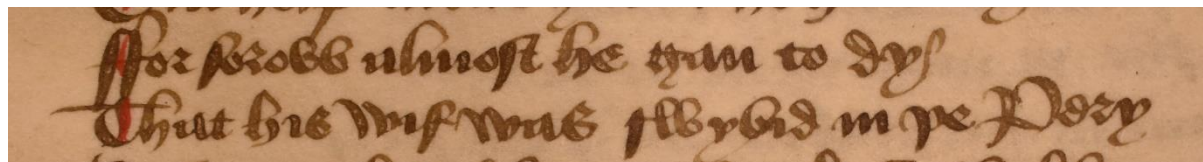 ffor sorow almost he gan to dy
That his wif was swyvid in þe Pery